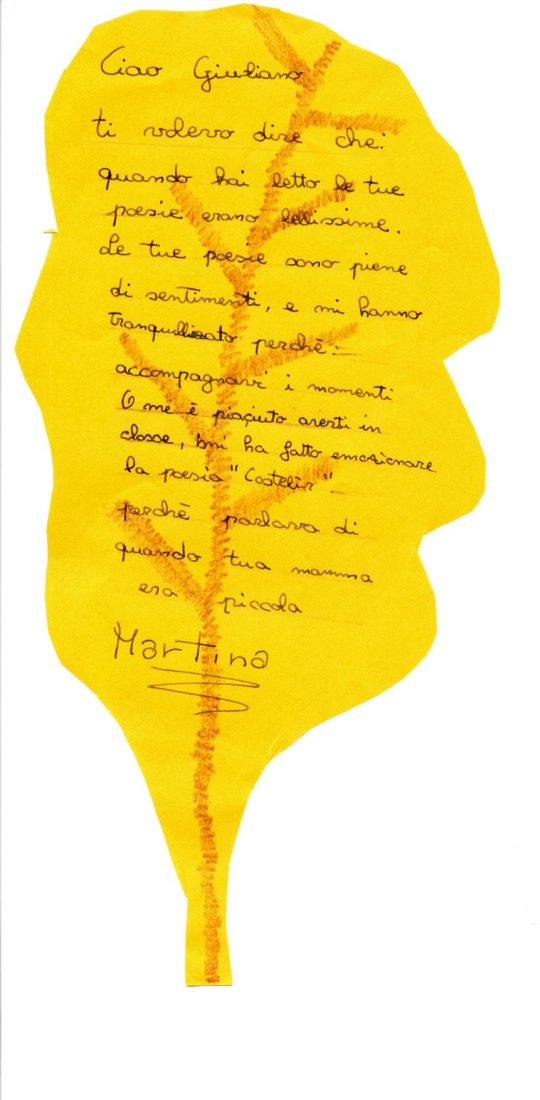 Ciao Giuliano
ti volevo dire che:
quando hai letto le tue
poesie erano bellissime.
Le tue poesie sono piene
di sentimenti, e mi hanno
tranquillizato perchè:
accompagnavi i momenti
O me è piaciuto averti in
classe, mi ha fatto emosionare
la poesia "Castelir"
perchè parlava di
quando tua mamma
era piccola
Martina